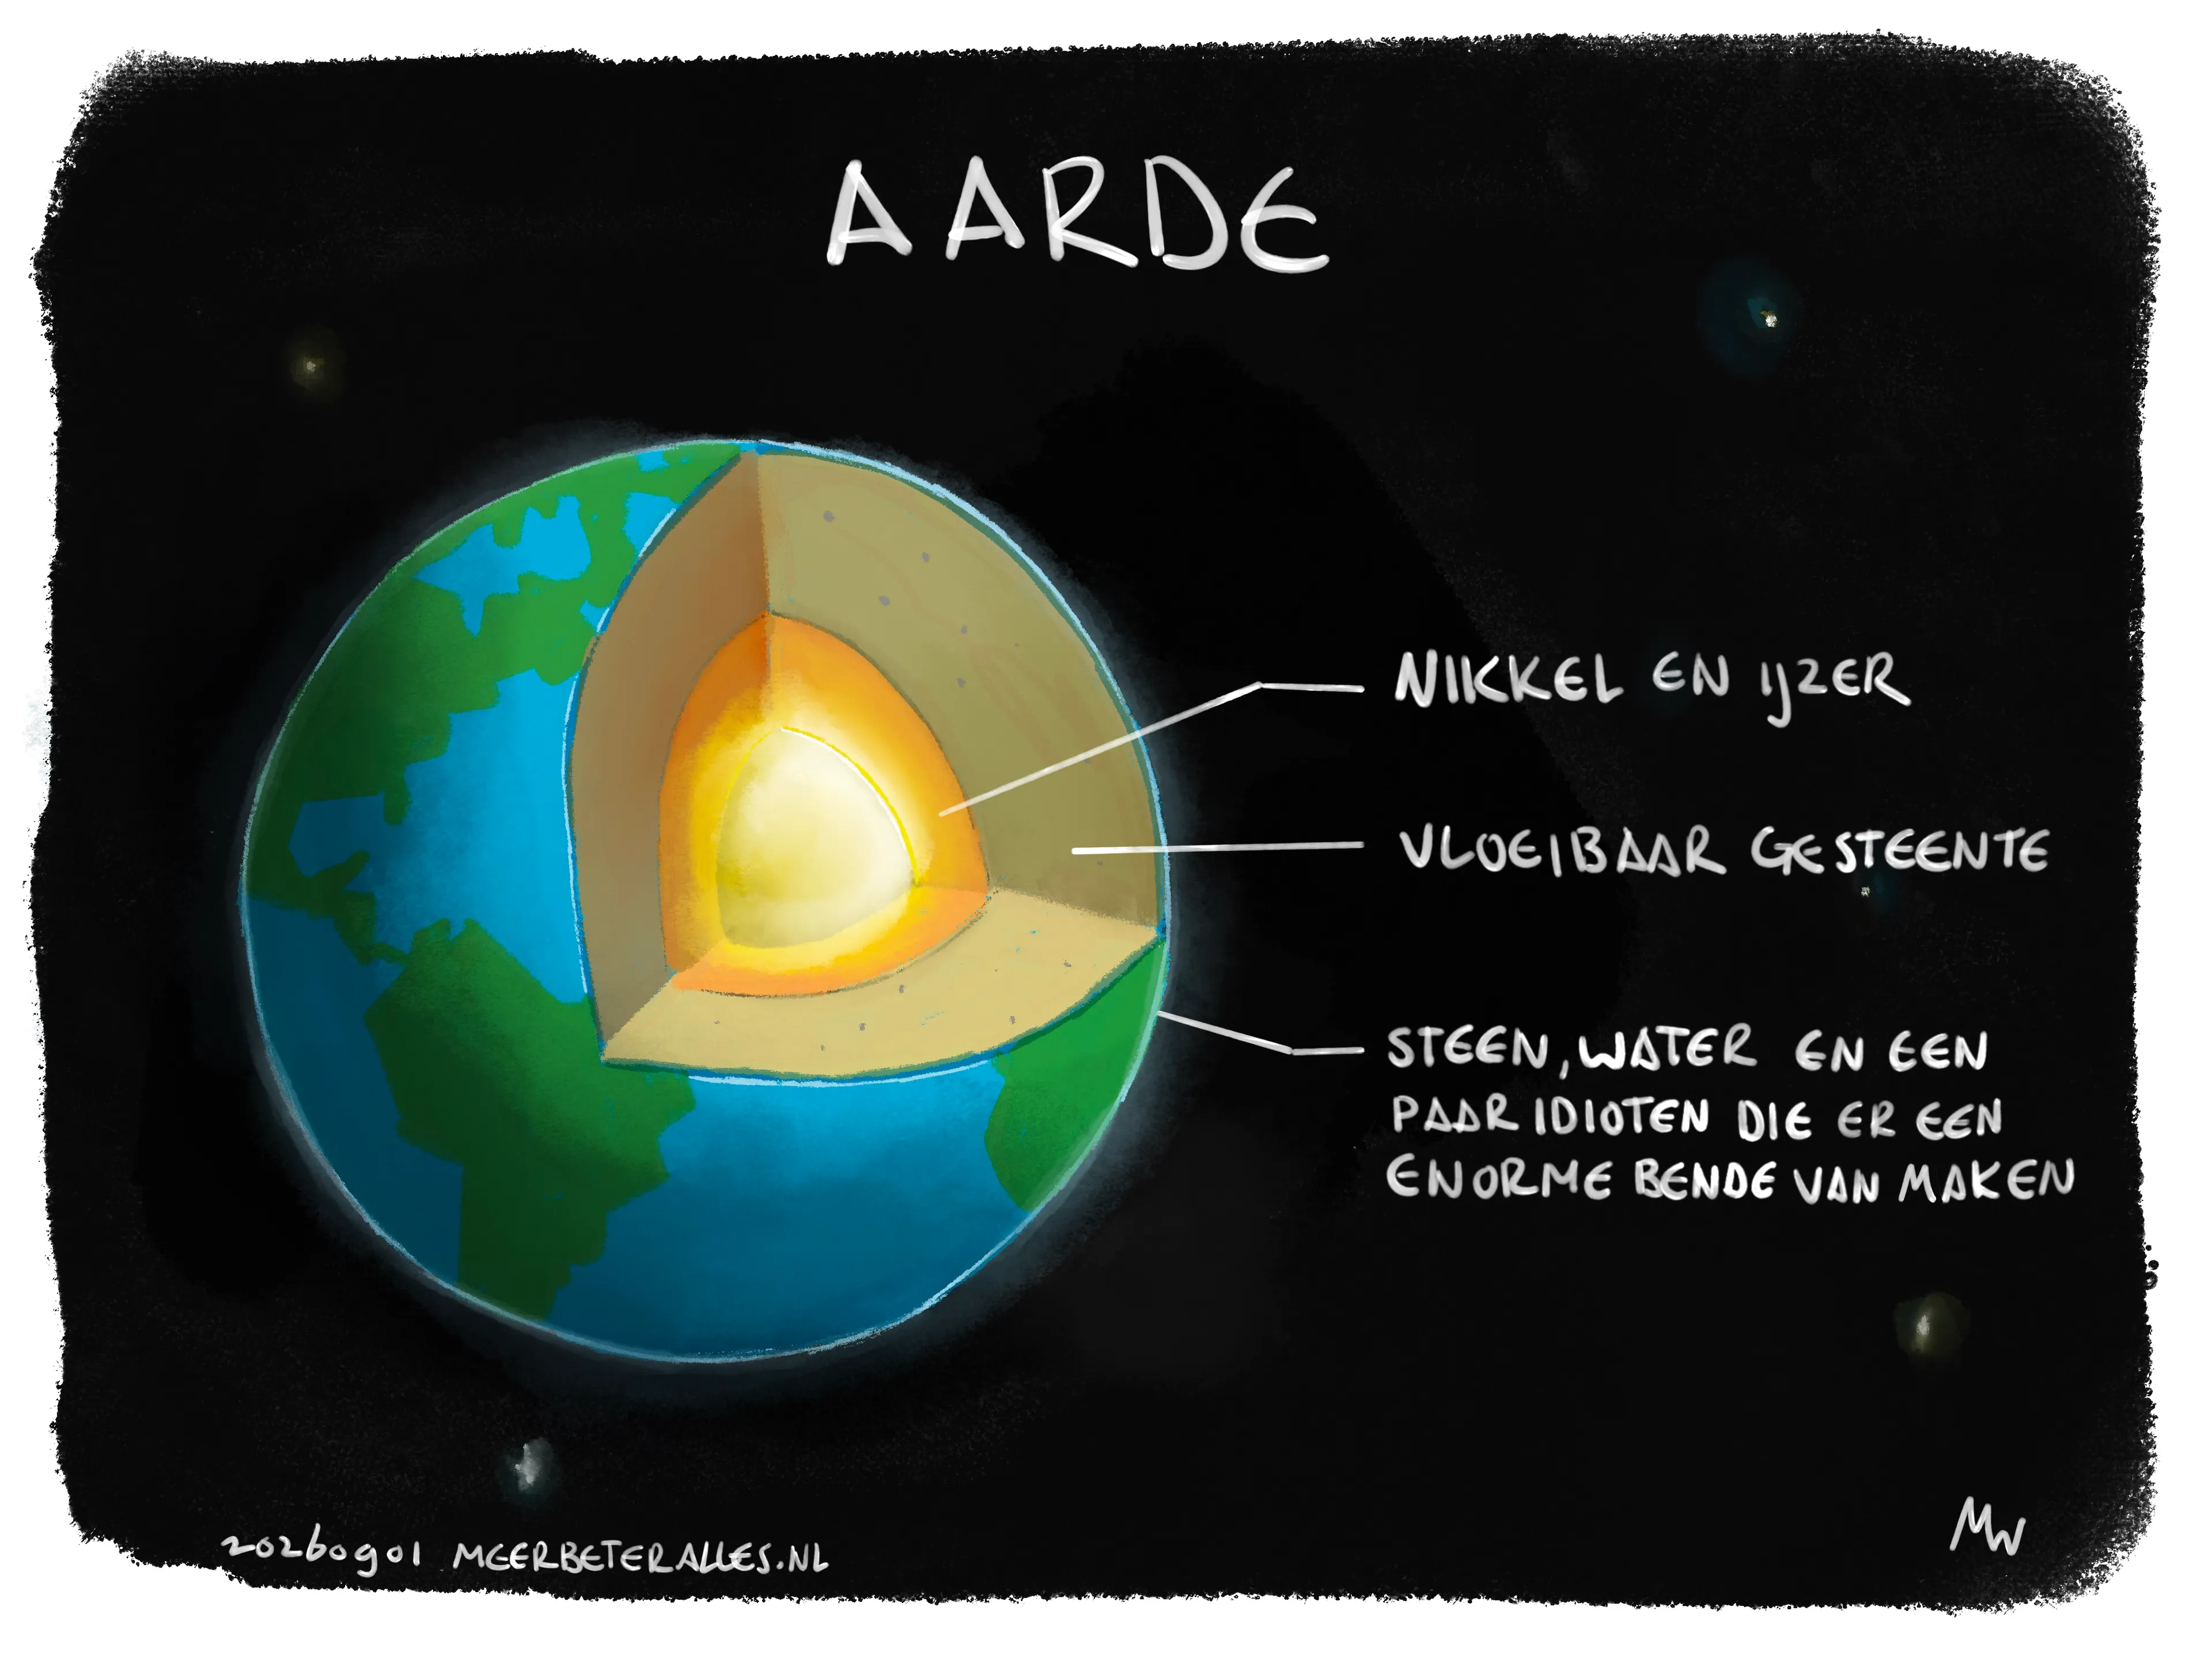 AARDE
NIKKEL EN IJZER
VLOEIBAAR GESTEENTE
STEEN, WATER EN EEN
PAAR IDIOTEN DIE ER EEN
ENORME BENDE VAN MAKEN
20260901 MEERBETERALLES.NL
MW